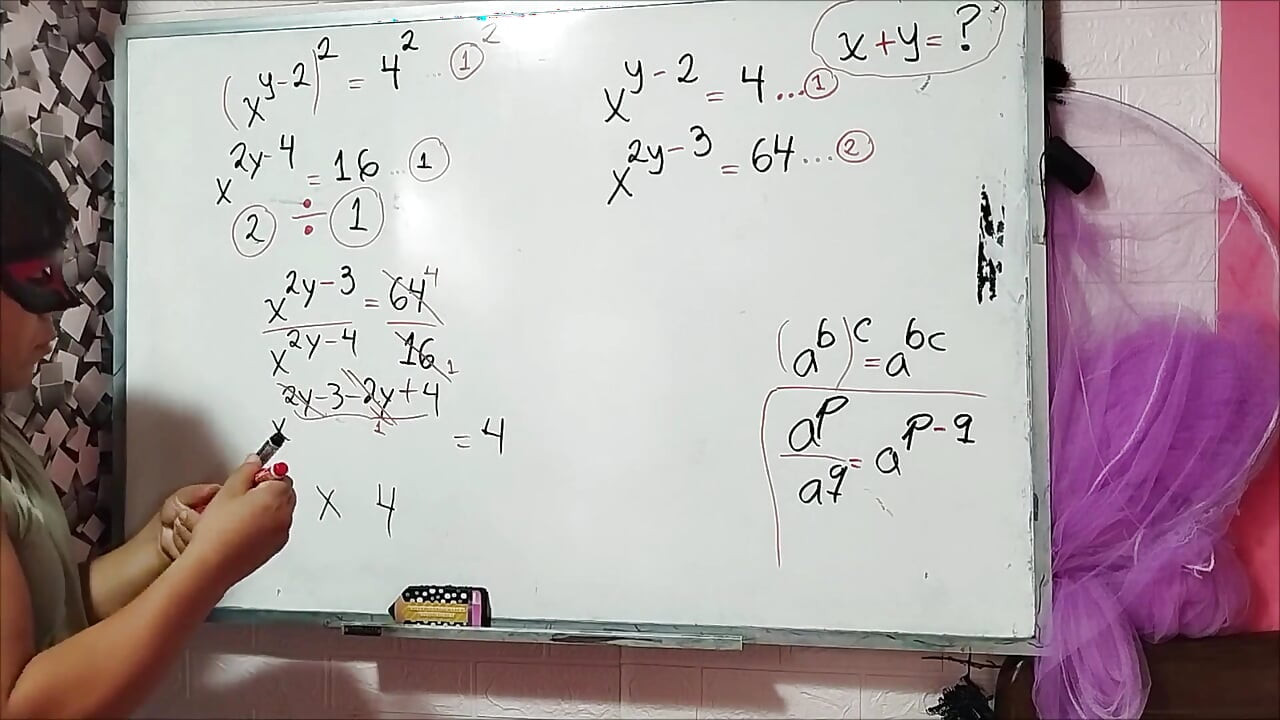 (x^{y-2})^2 = 4^2 ... ①^2
x^{2y-4} = 16 ... ①
② ÷ ①
x^{2y-3} / x^{2y-4} = 64^4 / 16_1
x^{2y-3-2y+4} = 4
1
x 4
x + y = ?
x^{y-2} = 4 ... ①
x^{2y-3} = 64 ... ②
(a^b)^c = a^{bc}
a^p / a^q = a^{p-q}